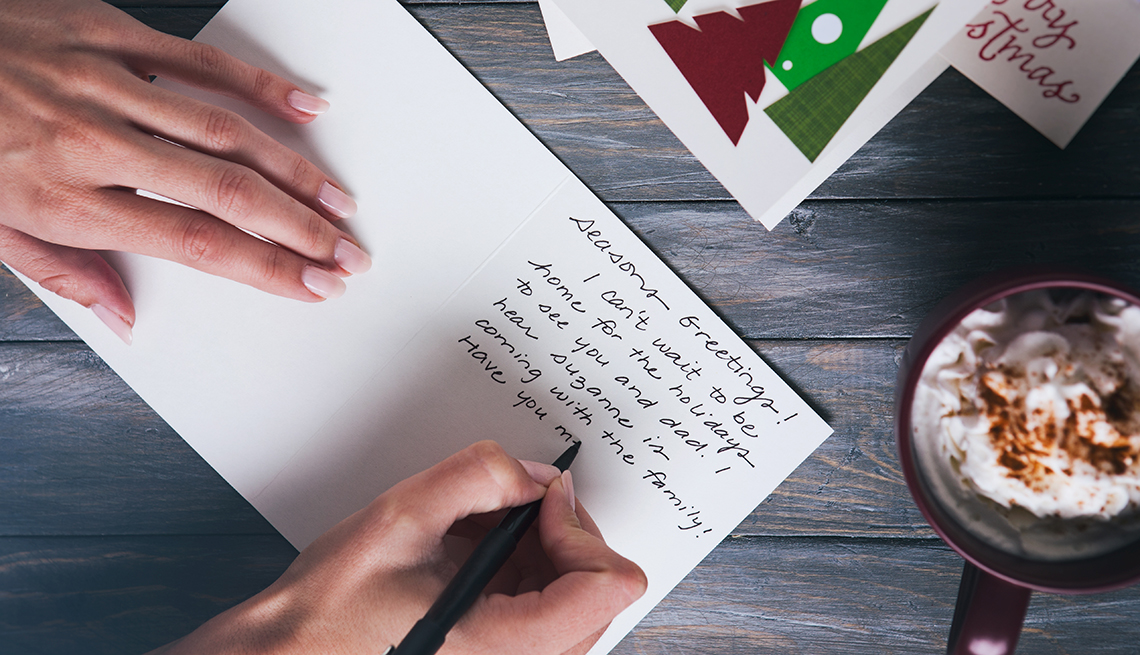 Seasons Greetings!
I can't wait to be
home for the holidays
to see you and dad. I
hear suzanne is
coming with the family!
Have you m
rry
stmas